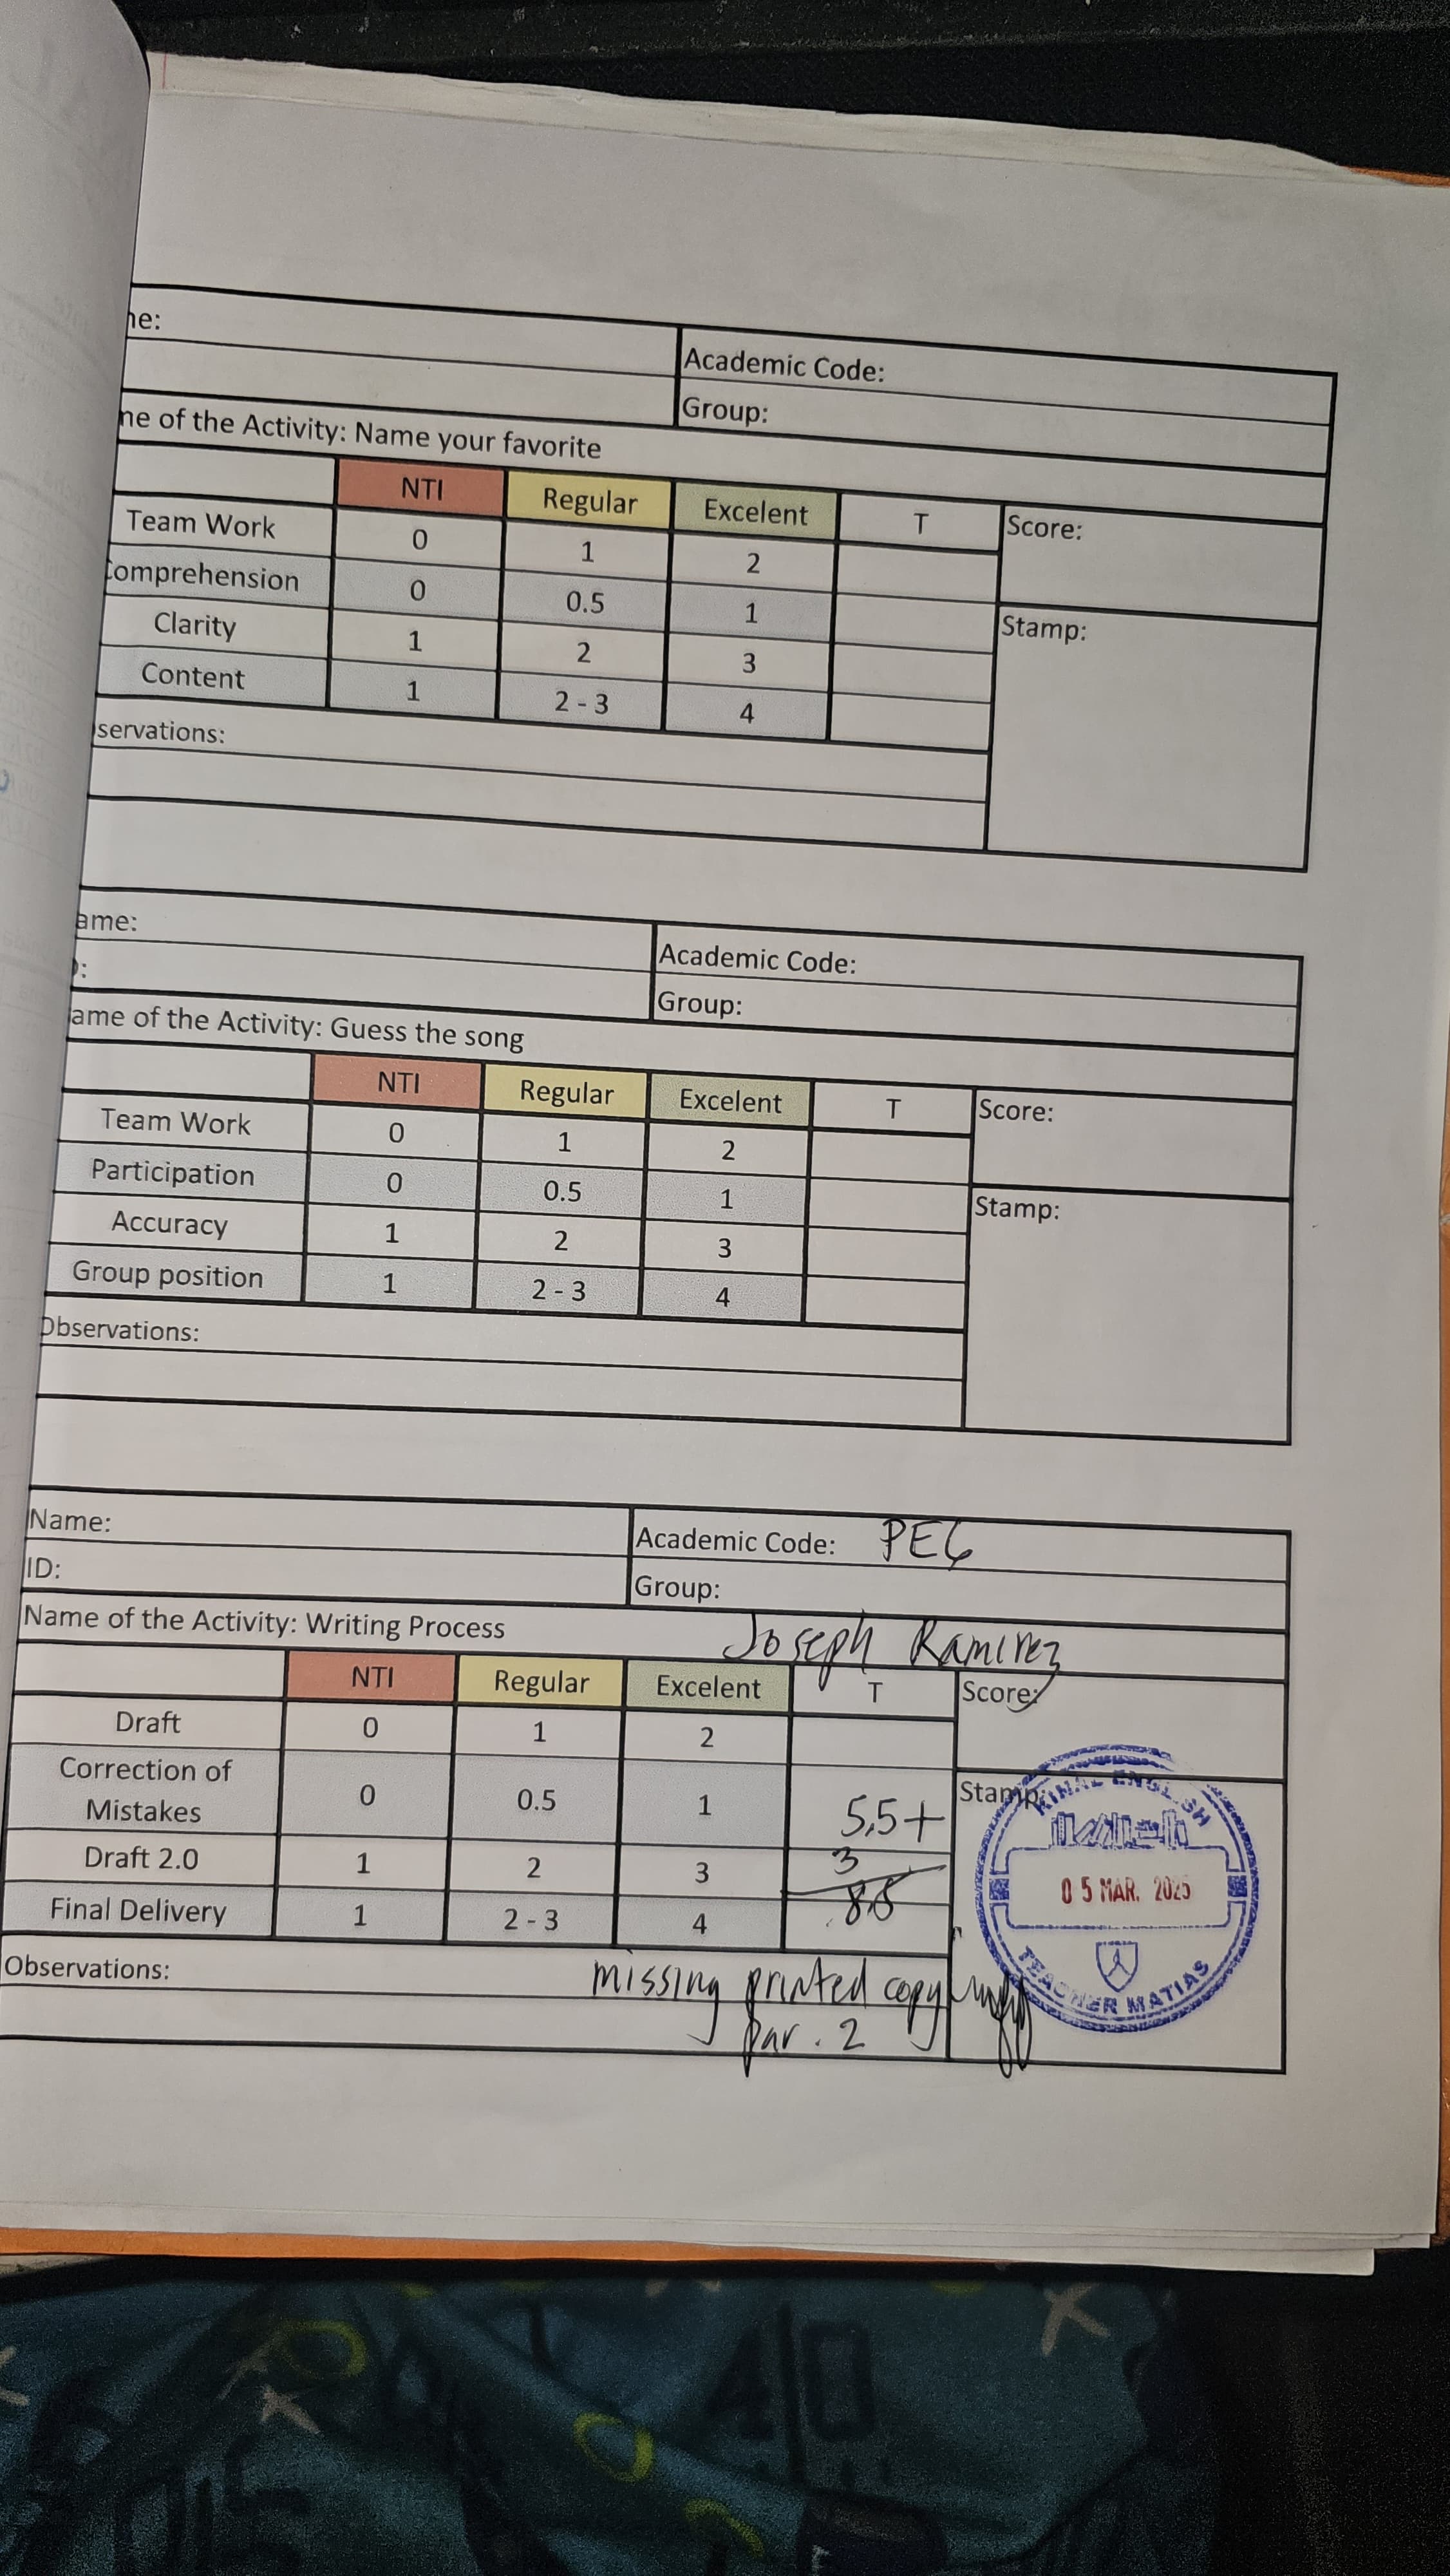 Academic Code:
Group:
of the Activity: Name your favorite
NTI Regular Excelent T Score:
Team Work 0 1 2
omprehension 0 0.5 1 Stamp:
Clarity 1 2 3
Content 1 2 - 3 4
servations:
ame: Academic Code:
Group:
ame of the Activity: Guess the song
NTI Regular Excelent T Score:
Team Work 0 1 2
Participation 0 0.5 1 Stamp:
Accuracy 1 2 3
Group position 1 2 - 3 4
Observations:
Name: Academic Code: PE6
ID: Group:
Name of the Activity: Writing Process Joseph Ramirez
NTI Regular Excelent T Score:
Draft 0 1 2
Correction of
Mistakes 0 0.5 1 5,5+ Stamp:
Draft 2.0 1 2 3 3
Final Delivery 1 2 - 3 4 8,5
05 MAR. 2025
TEACHER MATIAS
Observations: missing printed copy
par. 2